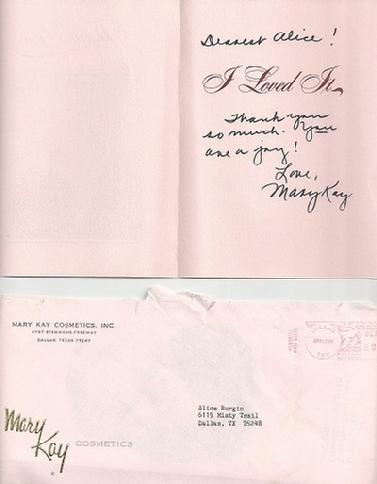 Dearest Alice!
I Loved It
Thank you
so much. You
are a joy!
Love,
Mary Kay
MARY KAY COSMETICS, INC.
8787 STEMMONS FREEWAY
DALLAS, TEXAS 75247
Alice Burgin
6115 Misty Trail
Dallas, TX 75248
Mary
Kay
COSMETICS